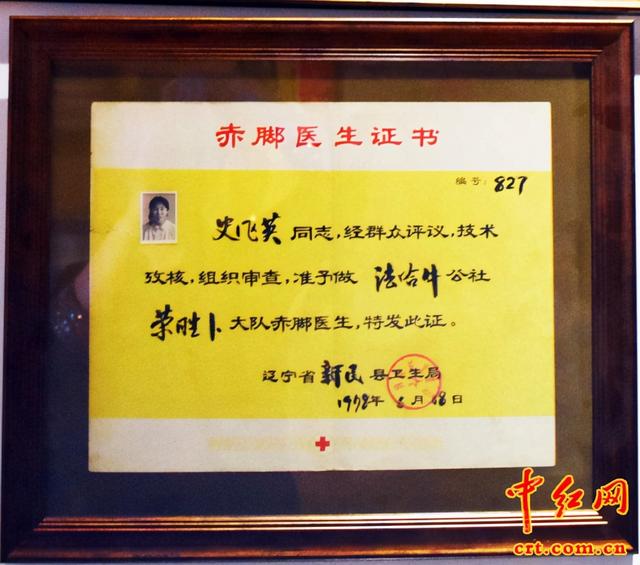 赤脚医生证书
编号：827
史飞英同志，经群众评议，技术
攷核，组织审查，准予做 法哈牛公社
荣胜卜大队赤脚医生，特发此证。
辽宁省新民县卫生局
1978年6月18日
中红网
crt.com.cn